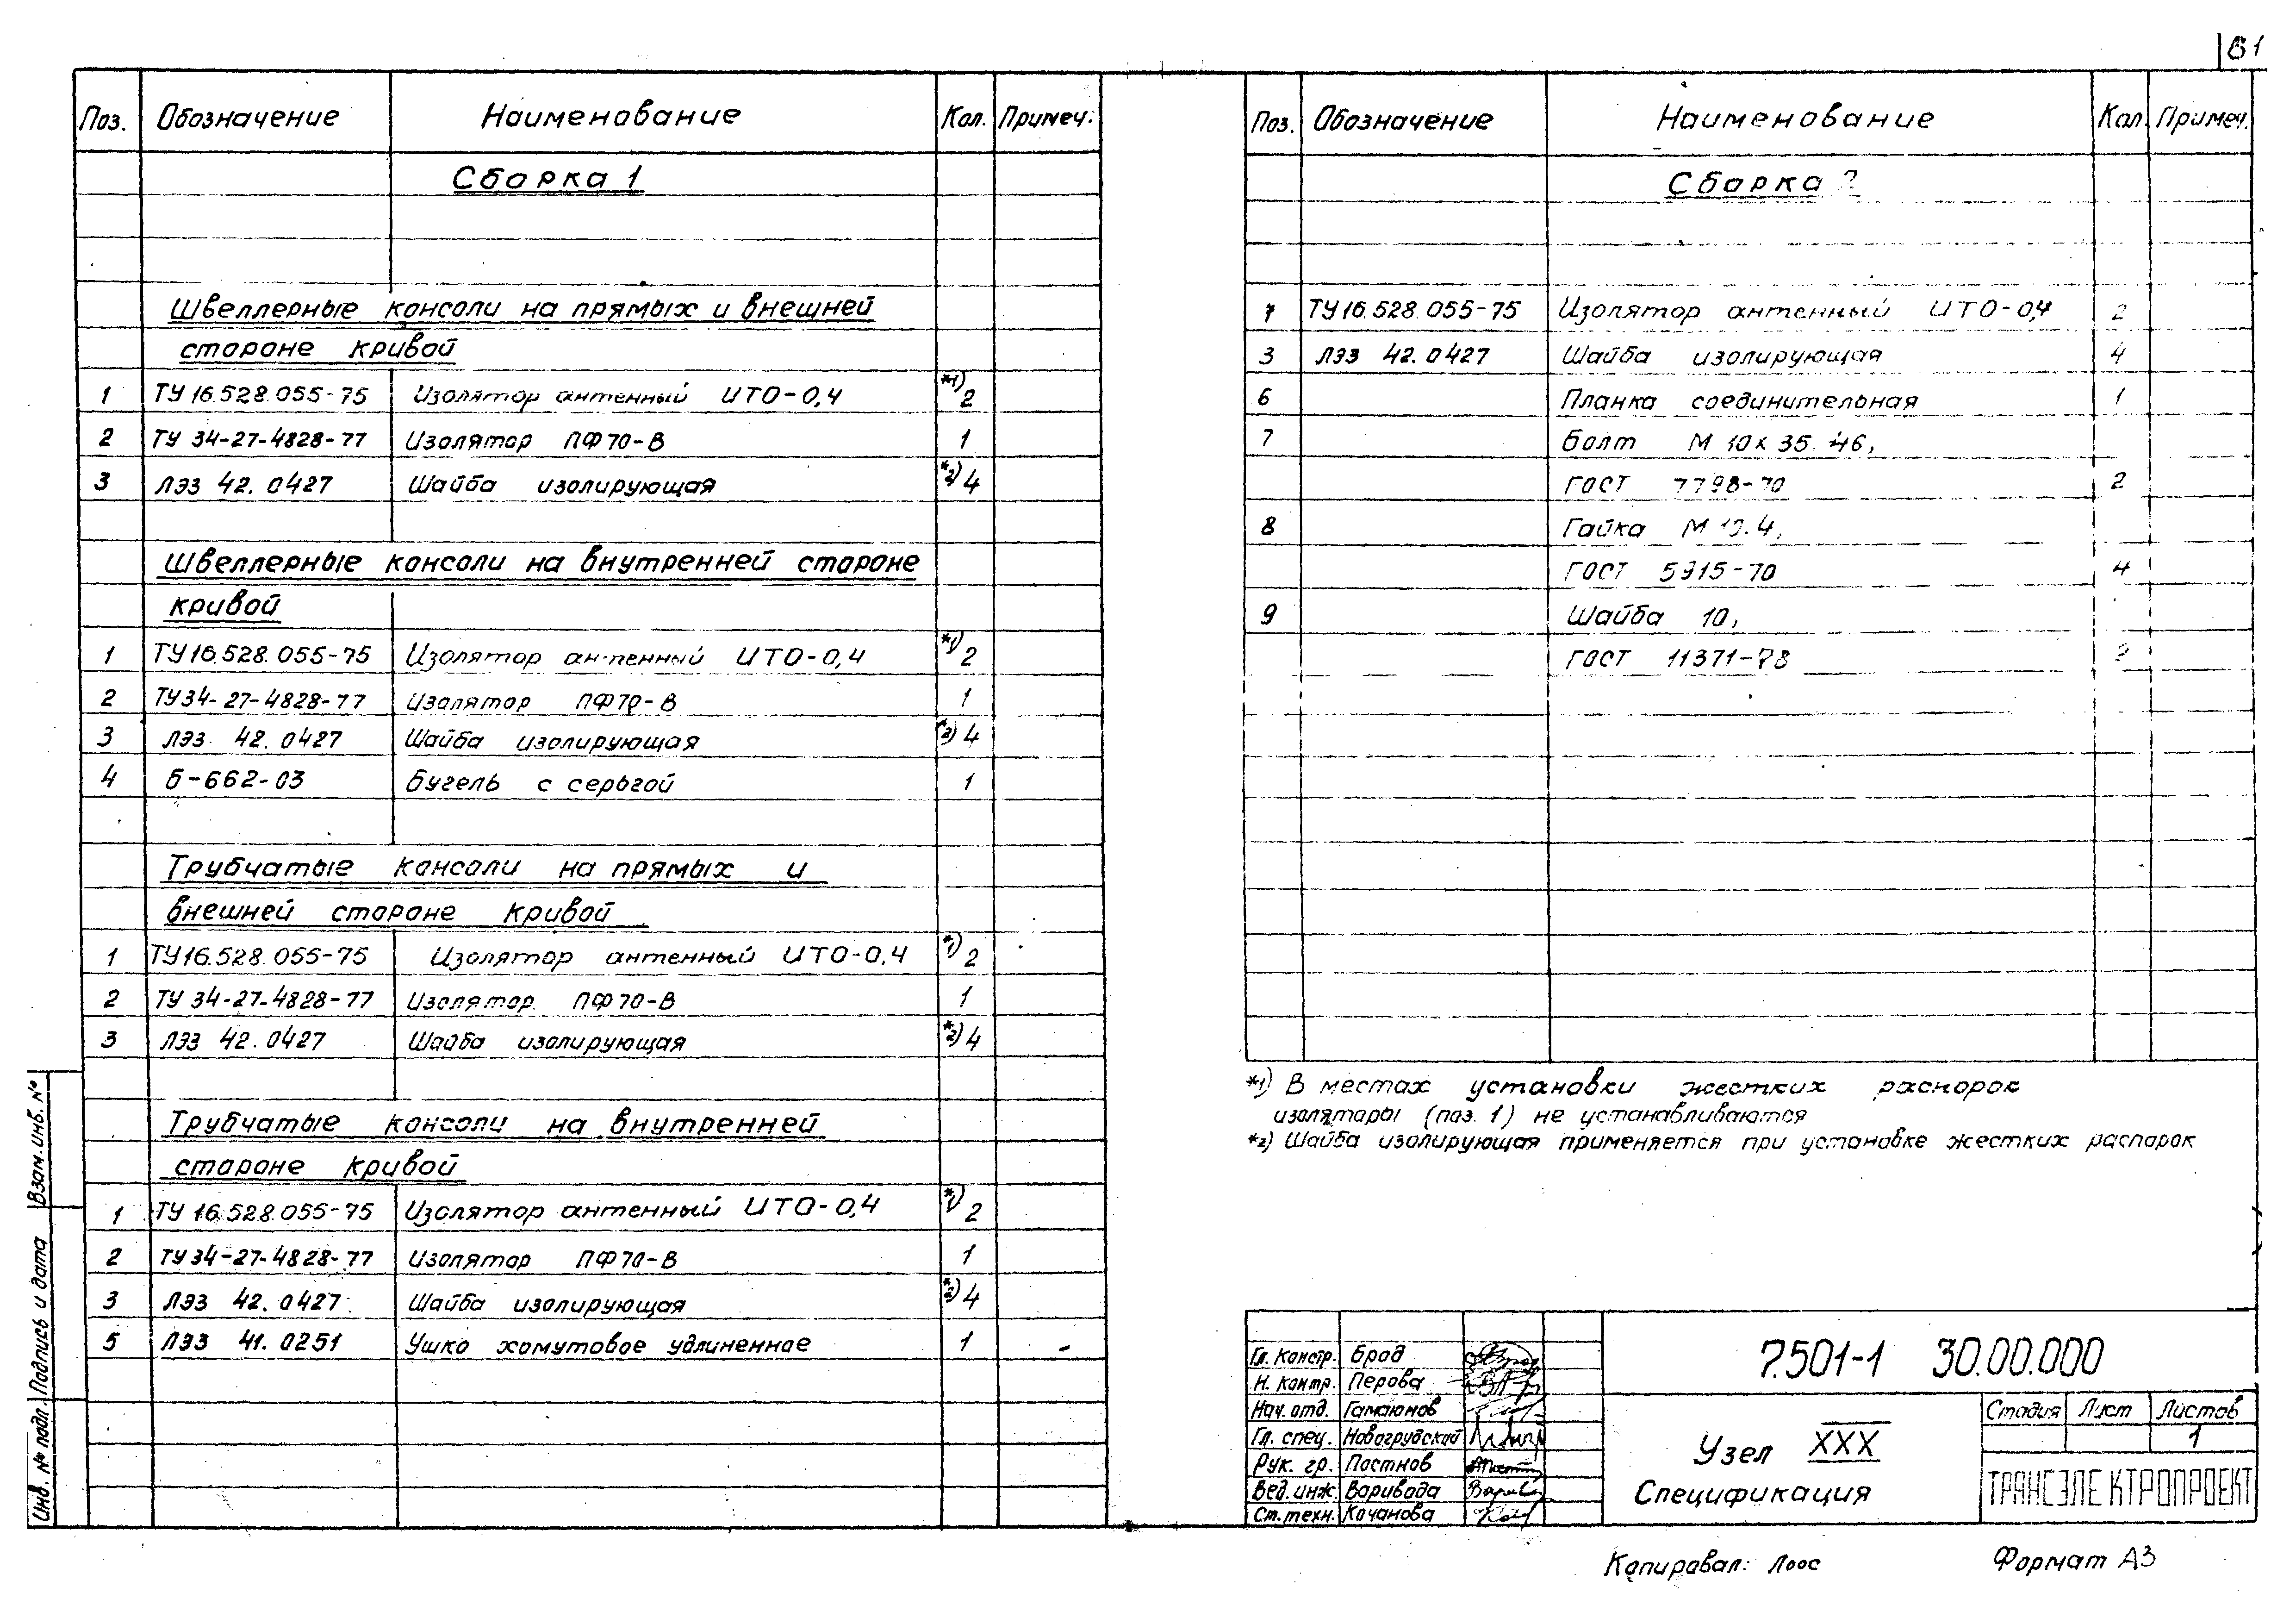 61
Поз. Обозначение Наименование Кол. Примеч.
Сборка 1
Швеллерные консоли на прямых и внешней
стороне кривой
1 ТУ 16.528.055-75 Изолятор антенный ИТО-0,4 *1) 2
2 ТУ 34-27-4828-77 Изолятор ПФ70-В 1
3 ЛЭЗ 42.0427 Шайба изолирующая *2) 4
Швеллерные консоли на внутренней стороне
кривой
1 ТУ 16.528.055-75 Изолятор антенный ИТО-0,4 *1) 2
2 ТУ 34-27-4828-77 Изолятор ПФ70-В 1
3 ЛЭЗ 42.0427 Шайба изолирующая *2) 4
4 Б-662-03 Бугель с серьгой 1
Трубчатые консоли на прямых и
внешней стороне кривой
1 ТУ 16.528.055-75 Изолятор антенный ИТО-0,4 *1) 2
2 ТУ 34-27-4828-77 Изолятор ПФ70-В 1
3 ЛЭЗ 42.0427 Шайба изолирующая *2) 4
Трубчатые консоли на внутренней
стороне кривой
1 ТУ 16.528.055-75 Изолятор антенный ИТО-0,4 *1) 2
2 ТУ 34-27-4828-77 Изолятор ПФ70-В 1
3 ЛЭЗ 42.0427 Шайба изолирующая *2) 4
5 ЛЭЗ 41.0251 Ушко хомутовое удлиненное 1
Поз. Обозначение Наименование Кол. Примеч.
Сборка 2
1 ТУ 16.528.055-75 Изолятор антенный ИТО-0,4 2
3 ЛЭЗ 42.0427 Шайба изолирующая 4
6 Планка соединительная 1
7 Болт М 10х35.46,
ГОСТ 7798-70 2
8 Гайка М 10.4,
ГОСТ 5915-70 4
9 Шайба 10,
ГОСТ 11371-78 2
*1) В местах установки жестких распорок
изоляторы (поз. 1) не устанавливаются
*2) Шайба изолирующая применяется при установке жестких распорок
Гл. констр. Брод
Н. контр. Перова
Нач. отд. Гамаюнов
Гл. спец. Новогрудский
Рук. гр. Постнов
Вед. инж. Варивода
Ст. техн. Кочанова
7.501-1 30.00.000
Узел XXX
Спецификация
Стадия Лист Листов
1
ТРАНСЭЛЕКТРОПРОЕКТ
Взам. инб. №
Подпись и дата
Инв. № подл.
Копировал: Лоос Формат А3